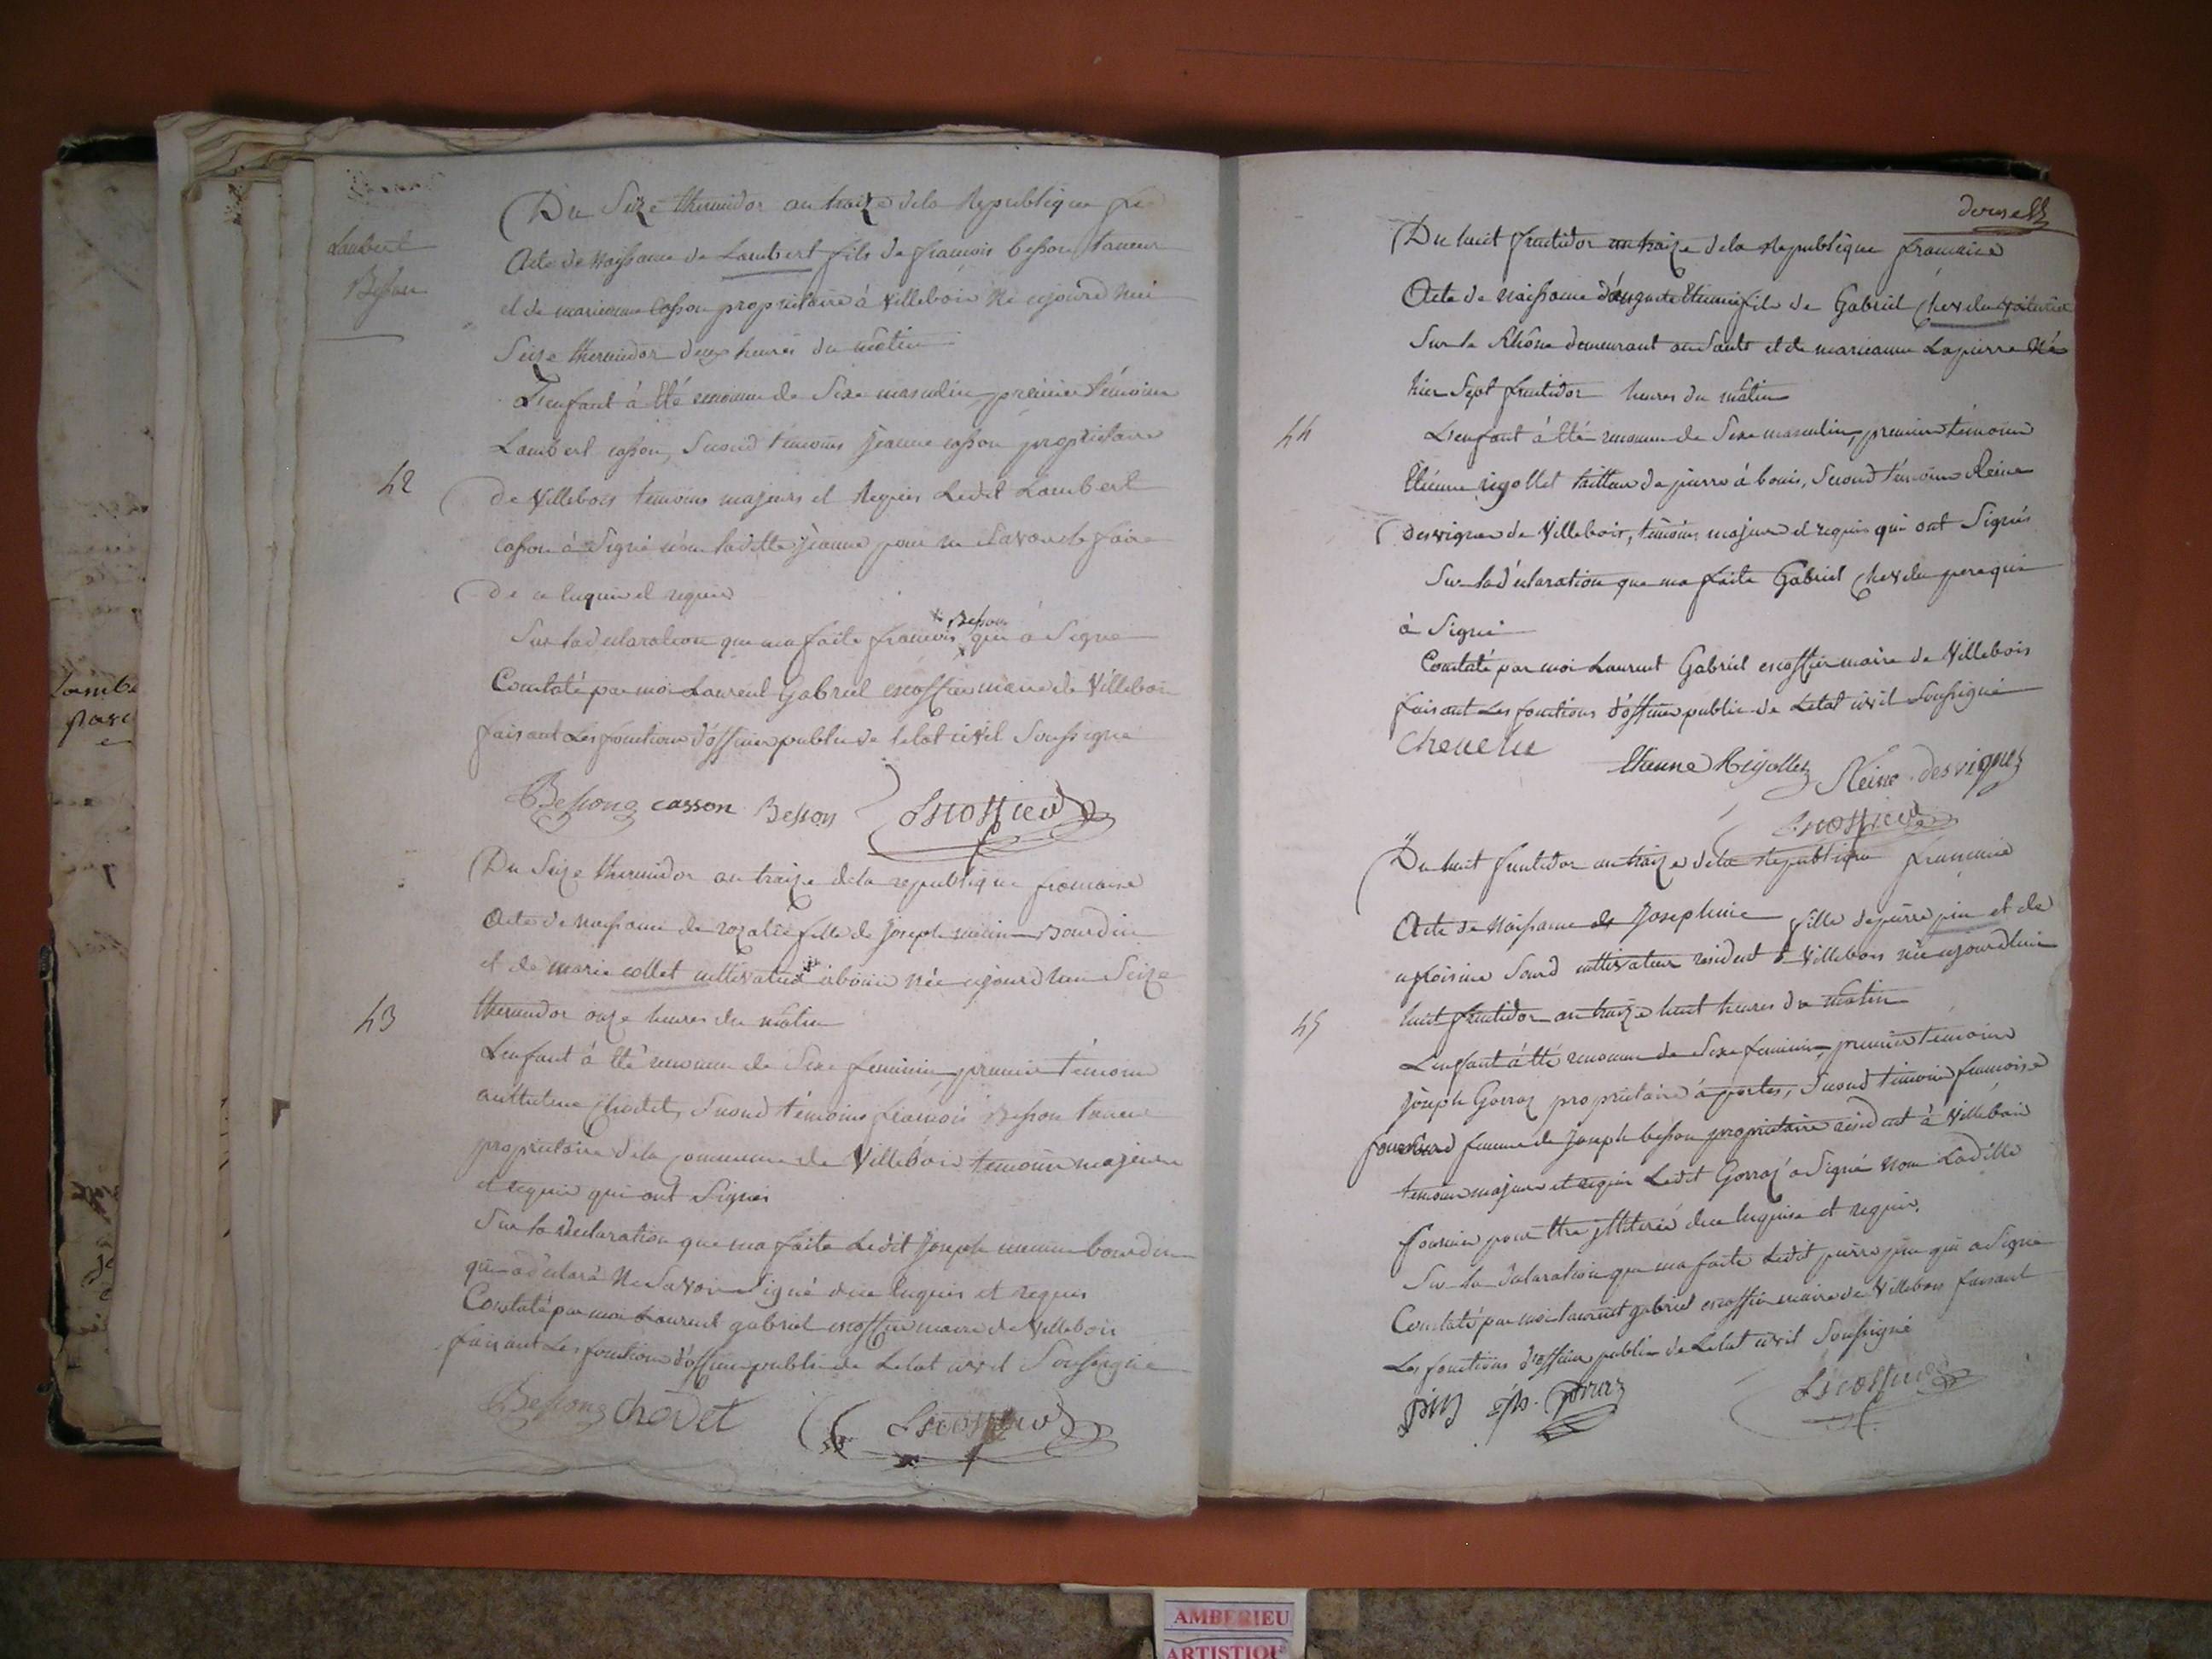 Lambert
Besson
Du Seize thermidor an treize de la Republique
Acte de Naissance de Lambert fils de francois besson taneur
et de marieanne casson propriétaire à Villebois Né ajourd'hui
Seize thermidor deux heures du matin
L'enfant à été reconnu de Sexe masculin, premier témoin
Lambert casson, Second témoins Jeanne casson propriétaire
42
de Villebois témoins majeurs et Requis Ledit Lambert
casson à Signé non ladille Jeanne pour ne Savoir le faire
de ce enquis et requis
Sur la declaration que ma faite francois Besson qui à Signé
Constaté par moi Laurent Gabriel escoffier maire de Villebois
faisant Les fonctions d'officier public de letat civil Soussigné
Besson casson Besson Escoffier
Du Seize thermidor an treize de la republique francaise
Acte de Naissance de rozalie fille de Joseph Bourdin
et de marie collet cultivateur à bouis née ajourd'hui Seize
43
thermidor onze heures du matin
L'enfant à été reconnu de Sexe feminin, premier témoin
anthelme Chodet, Second témoins francois Besson taneur
propriétaire de la commune de Villebois temoins majeurs
et requis qui ont Signés
Sur la declaration que ma faite Ledit Joseph bourdin
qui a déclaré Ne Savoir Signé de ce enquis et requis
Constaté par moi Laurent gabriel escoffier maire de Villebois
faisant Les fonctions d'officier public de Letat civil Soussigné
Besson Chodet Escoffier
Du huit fructidor an treize de la Republique francaise
Acte de Naissance d'auguste Etienne fils de Gabriel Chevelu voiturier
Sur le Rhône demeurant au Sault et de marieanne Lapierre Né
hier Sept fructidor heures du matin
44
L'enfant à été reconnu de Sexe masculin, premier témoin
Etienne rigollet tailleur de pierre à bouis, Second témoin Reine
desvignes de Villebois, témoins majeurs et requis qui ont Signés
Sur la déclaration que ma faite Gabriel Chevelu pere qui
à Signé
Constaté par moi Laurent Gabriel escoffier maire de Villebois
faisant Les fonctions d'officier public de Letat civil Soussigné
Chevelu
Etienne Rigollet Reine desvignes
Escoffier
Du huit fructidor an treize de la Republique francaise
Acte de Naissance de Josephine fille de pierre pin et de
Sourd cultivateur résident à Villebois née ajourdhui
45
huit fructidor an treize huit heures du matin
L'enfant à été reconnu de Sexe feminin, premier témoin
Joseph Gorraz propriétaire à portes, Second témoin francoise
femme de Joseph besson propriétaire résident à Villebois
temoins majeurs et requis Ledit Gorraz à Signé non Ladille
pour être de ce enquise et requise.
Sur la déclaration que ma faite Ledit pierre pin qui a Signé
Constaté par moi laurent gabriel escoffier maire de Villebois faisant
Les fonctions d'officier public de Letat civil Soussigné
pin Escoffier
AMBERIEU
ARTISTIQUE